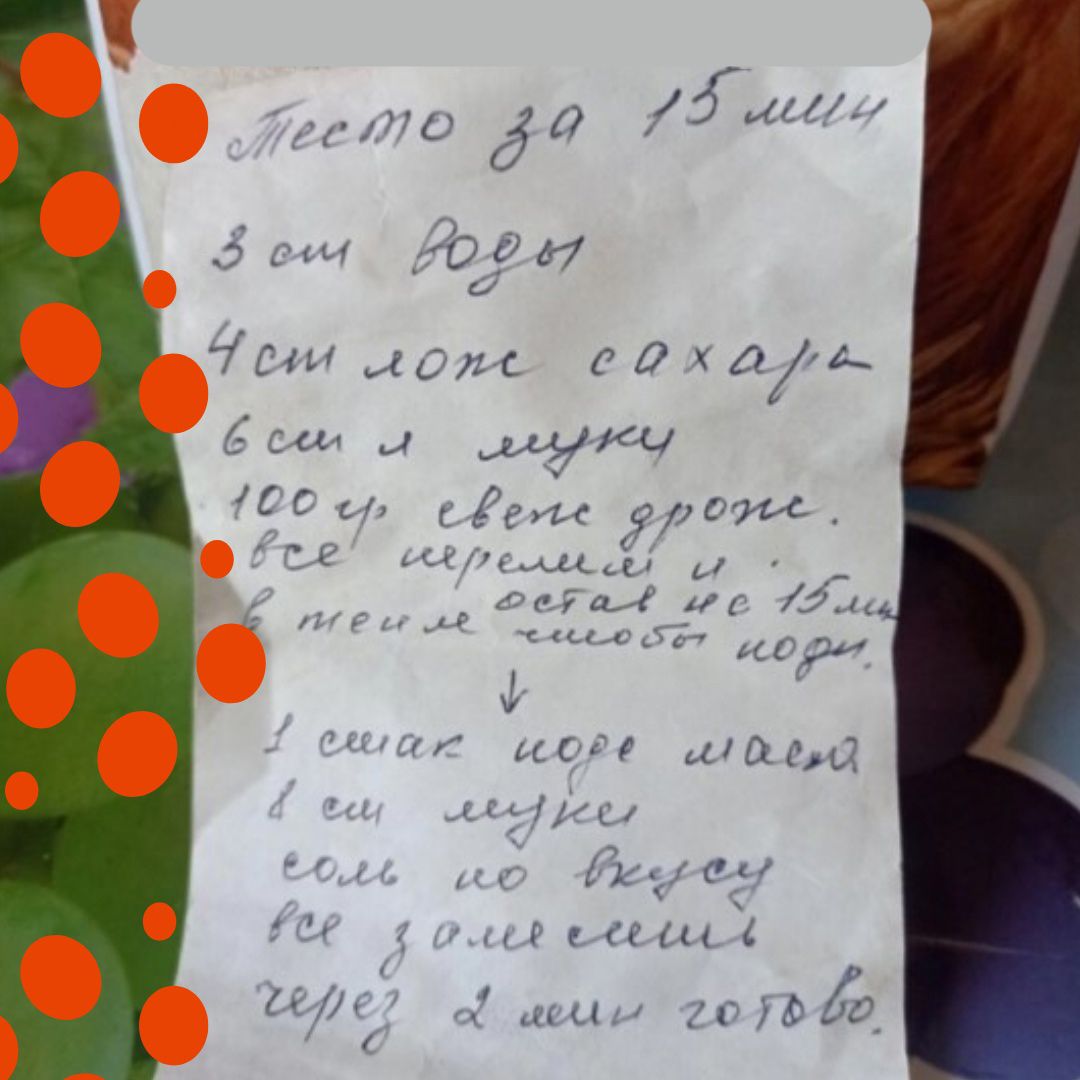 Тесто за 15 мин
3 ст воды
4 ст лож сахара
6 ст л муки
100 гр свеж дрож.
все перемеш и
остав на 15 мин
в тепле чтобы подн.
↓
1 стак подс масла
8 ст муки
соль по вкусу
все замесишь
через 2 мин готово.